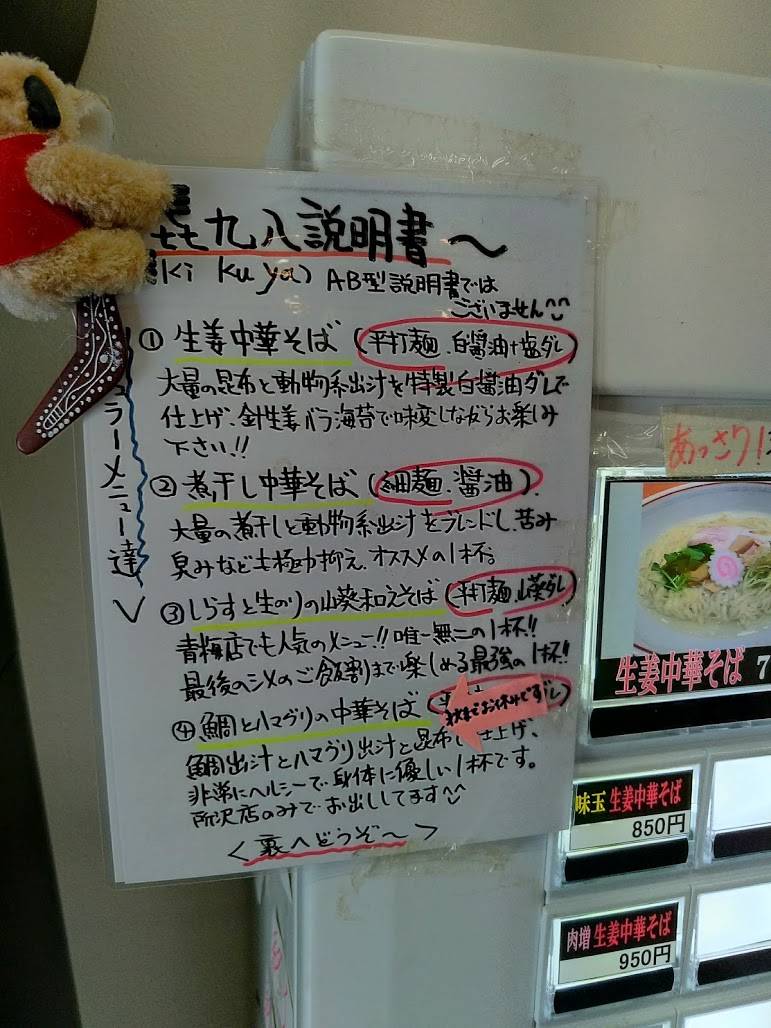 㐂九八説明書〜
(Ki Ku ya) AB型説明書では
ございません^^
ュラーメニュー達
① 生姜中華そば (平打麺、白醤油+塩ダレ)
大量の昆布と動物系出汁を特製白醤油ダレで
仕上げ、針生姜バラ海苔で味変しながらお楽しみ
下さい!!
② 煮干し中華そば (細麺、醤油)、
大量の煮干しと動物系出汁をブレンドし、苦み
臭みなども極力抑え、オススメの1杯。
③ しらすと生のりの山葵和えそば (平打麺、山葵ダレ)
青梅店でも人気のメニュー!! 唯一無二の1杯!!
最後のシメのご飯割りまで楽しめる最強の1杯!!
④ 鯛とハマグリの中華そば
お休みです
レ)
鯛出汁とハマグリ出汁と昆布で仕上げ、
非常にヘルシーで身体に優しい1杯です。
所沢店のみでお出ししてます^^
<裏へどうぞ〜>
あっさり!
生姜中華そば 7
味玉 生姜中華そば
850円
肉増 生姜中華そば
950円